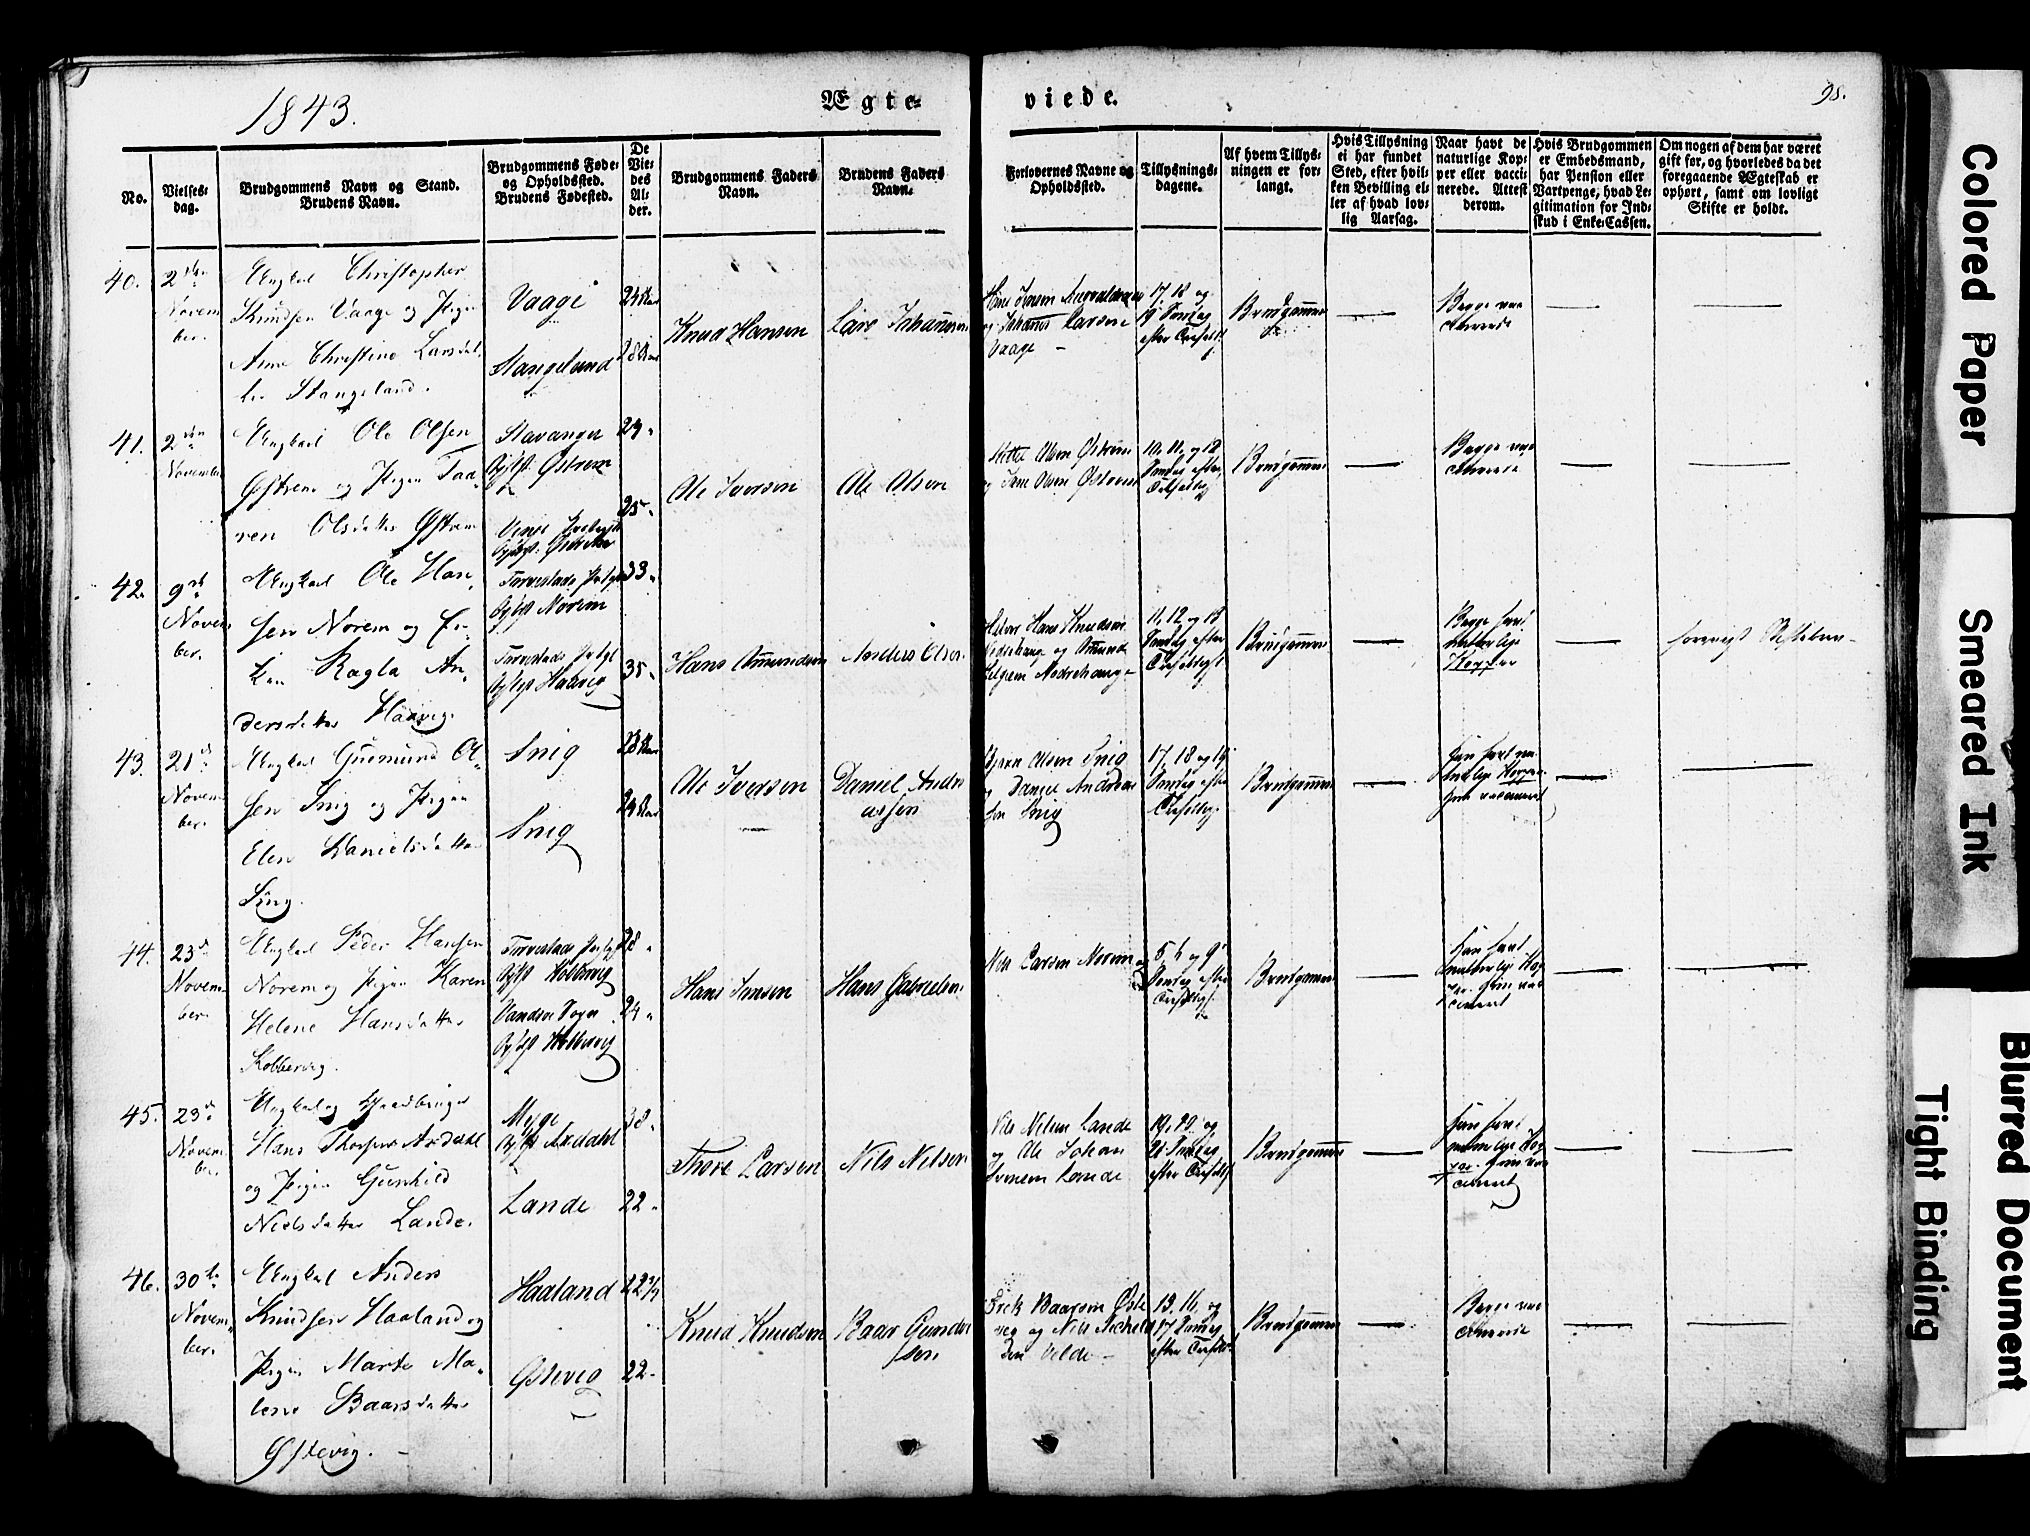 1843.
Ægte-
viede.
98.
No.
Vielses-
dag.
Brudgommens Navn og Stand.
Brudens Navn.
Brudgommens Føde-
og Opholdssted.
Brudens Fødested.
De
Vie-
des
Al-
der.
Brudgommens Faders
Navn.
Brudens Faders
Navn.
Forlovernes Navne og
Opholdssted.
Tillysnings-
dagene.
Af hvem Tillys-
ningen er for-
langt.
Hvis Tillysning
ei har fundet
Sted, efter hvil-
ken Bevilling el-
ler af hvad lov-
lig Aarsag.
Naar havt de
naturlige Kop-
per eller vacci-
nerede. Attest
derom.
Hvis Brudgommen
er Embedsmand,
har Pension eller
Vartpenge, hvad Le-
gitimation for Ind-
skud i Enke-Cassen.
Om nogen af dem har været
gift før, og hvorledes da det
foregaaende Ægteskab er
ophørt, samt om lovligt
Skifte er holdt.
40.
2den
Novem-
ber.
Ungkarl Christopher
Knudsen Vaage og Pigen
Anne Christine Larsdat-
ter Stangeland.
Vaage
Stangeland
24 Aar
28 Aar
Knud Hansen
Lars Johannesen
og Johannes Larsen
Vaage
17, 18 og
19 Søndag
efter Trefoldt.
Brudgommen
Begge vac-
cinerede
41.
2den
November
Ungkarl Ole Olsen
Østrem og Pigen Taa-
ren Olsdatter Østrem
Stavanger
Opst. Østrem
29
25
Ole Iversen
Ole Olsen
10, 11, og 12
Søndag efter
Brudgommen
Begge vac-
cinerede
42.
9de
Novem-
ber.
Ungkarl Ole Han-
sen Norem og En-
ken Ragla An-
dersdatter Haavig.
Torvestads Prstgd
Opst Norem
Torvestads Prstgd
Opst Haavig
33
35
Hans Amundsen
Anders Olsen
Hans Knudsen
11, 12 og 13
Søndag efter
Brudgommen
Begge havt
naturlige
Kopper
43.
21de
Novem-
ber.
Ungkarl Gudmund Ol-
sen Snig og Pigen
Elen Danielsdatter
Snig.
Snig
Snig
28 Aar
24 Aar
Ole Iversen
Daniel Andre-
assen
Bjørn Olsen Snig
og Daniel Andreas-
sen Snig
17, 18 og 19
Søndag efter
Brudgommen
44.
23de
Novem-
ber.
Ungkarl Peder Hansen
Norem og Pigen Karen
Helene Hansdatter
Kolbervig.
Torvestads Prstgd
Opst Kolbervig
Opst Kolbervig
28
24
Hans Jensen
Hans Gabrielsen
Nils Larsen Norem
5, 6 og 9
Søndag efter
Brudgommen
45.
23de
Novem-
ber.
Ungkarl og Gaardbruger
Hans Thorsen Axdahl
og Pigen Gunhild
Nielsdatter Lande.
Mæge
Opst Axdahl
Lande
38
22
Thore Larsen
Nils Nilsen
Nils Nilsen Lande
og Ole Johan
Lande
19, 20 og
21 Søndag
efter Trefoldt
Brudgommen
46.
30te
Novem-
ber.
Ungkarl Anders
Knudsen Haaland og
Pigen Marte Ma-
lene Baarsdatter
Østevig.
Haaland
Østevig
22
Knud Knudsen
Baar Gunder-
sen
Erik Baarsen Øste-
vig og Nils
Velde
15, 16, og
17 Søndag
efter Trefoldt
Brudgommen
Begge vac-
cinerede
Colored Paper
Smeared Ink
Blurred Document
Tight Binding